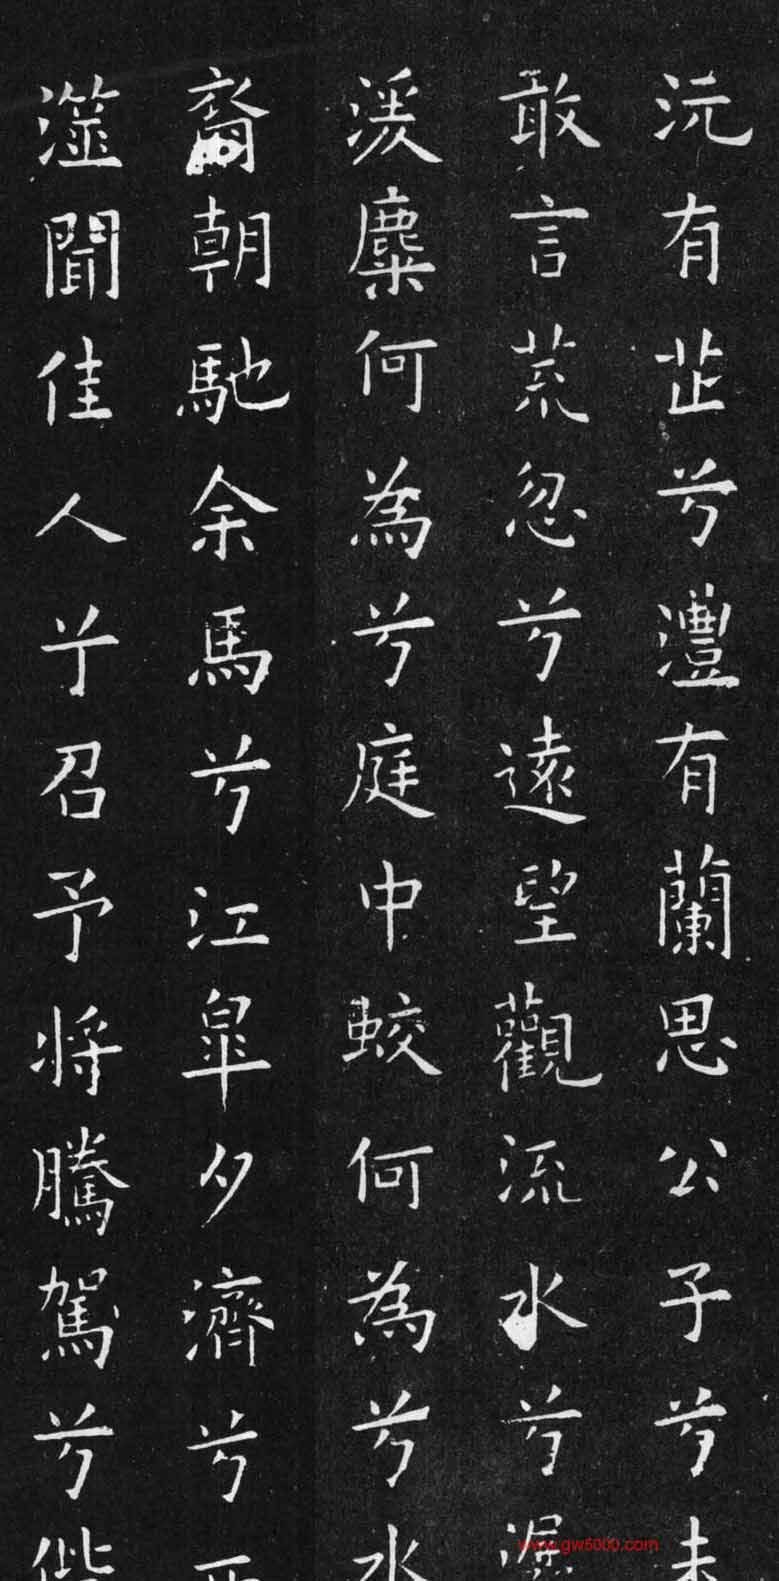 沅有芷兮澧有蘭思公子兮未
敢言荒忽兮遠望觀流水兮潺
湲麋何為兮庭中蛟何為兮水
裔朝馳余馬兮江皋夕濟兮西
澨聞佳人兮召予將騰駕兮偕
www.gw5000.com